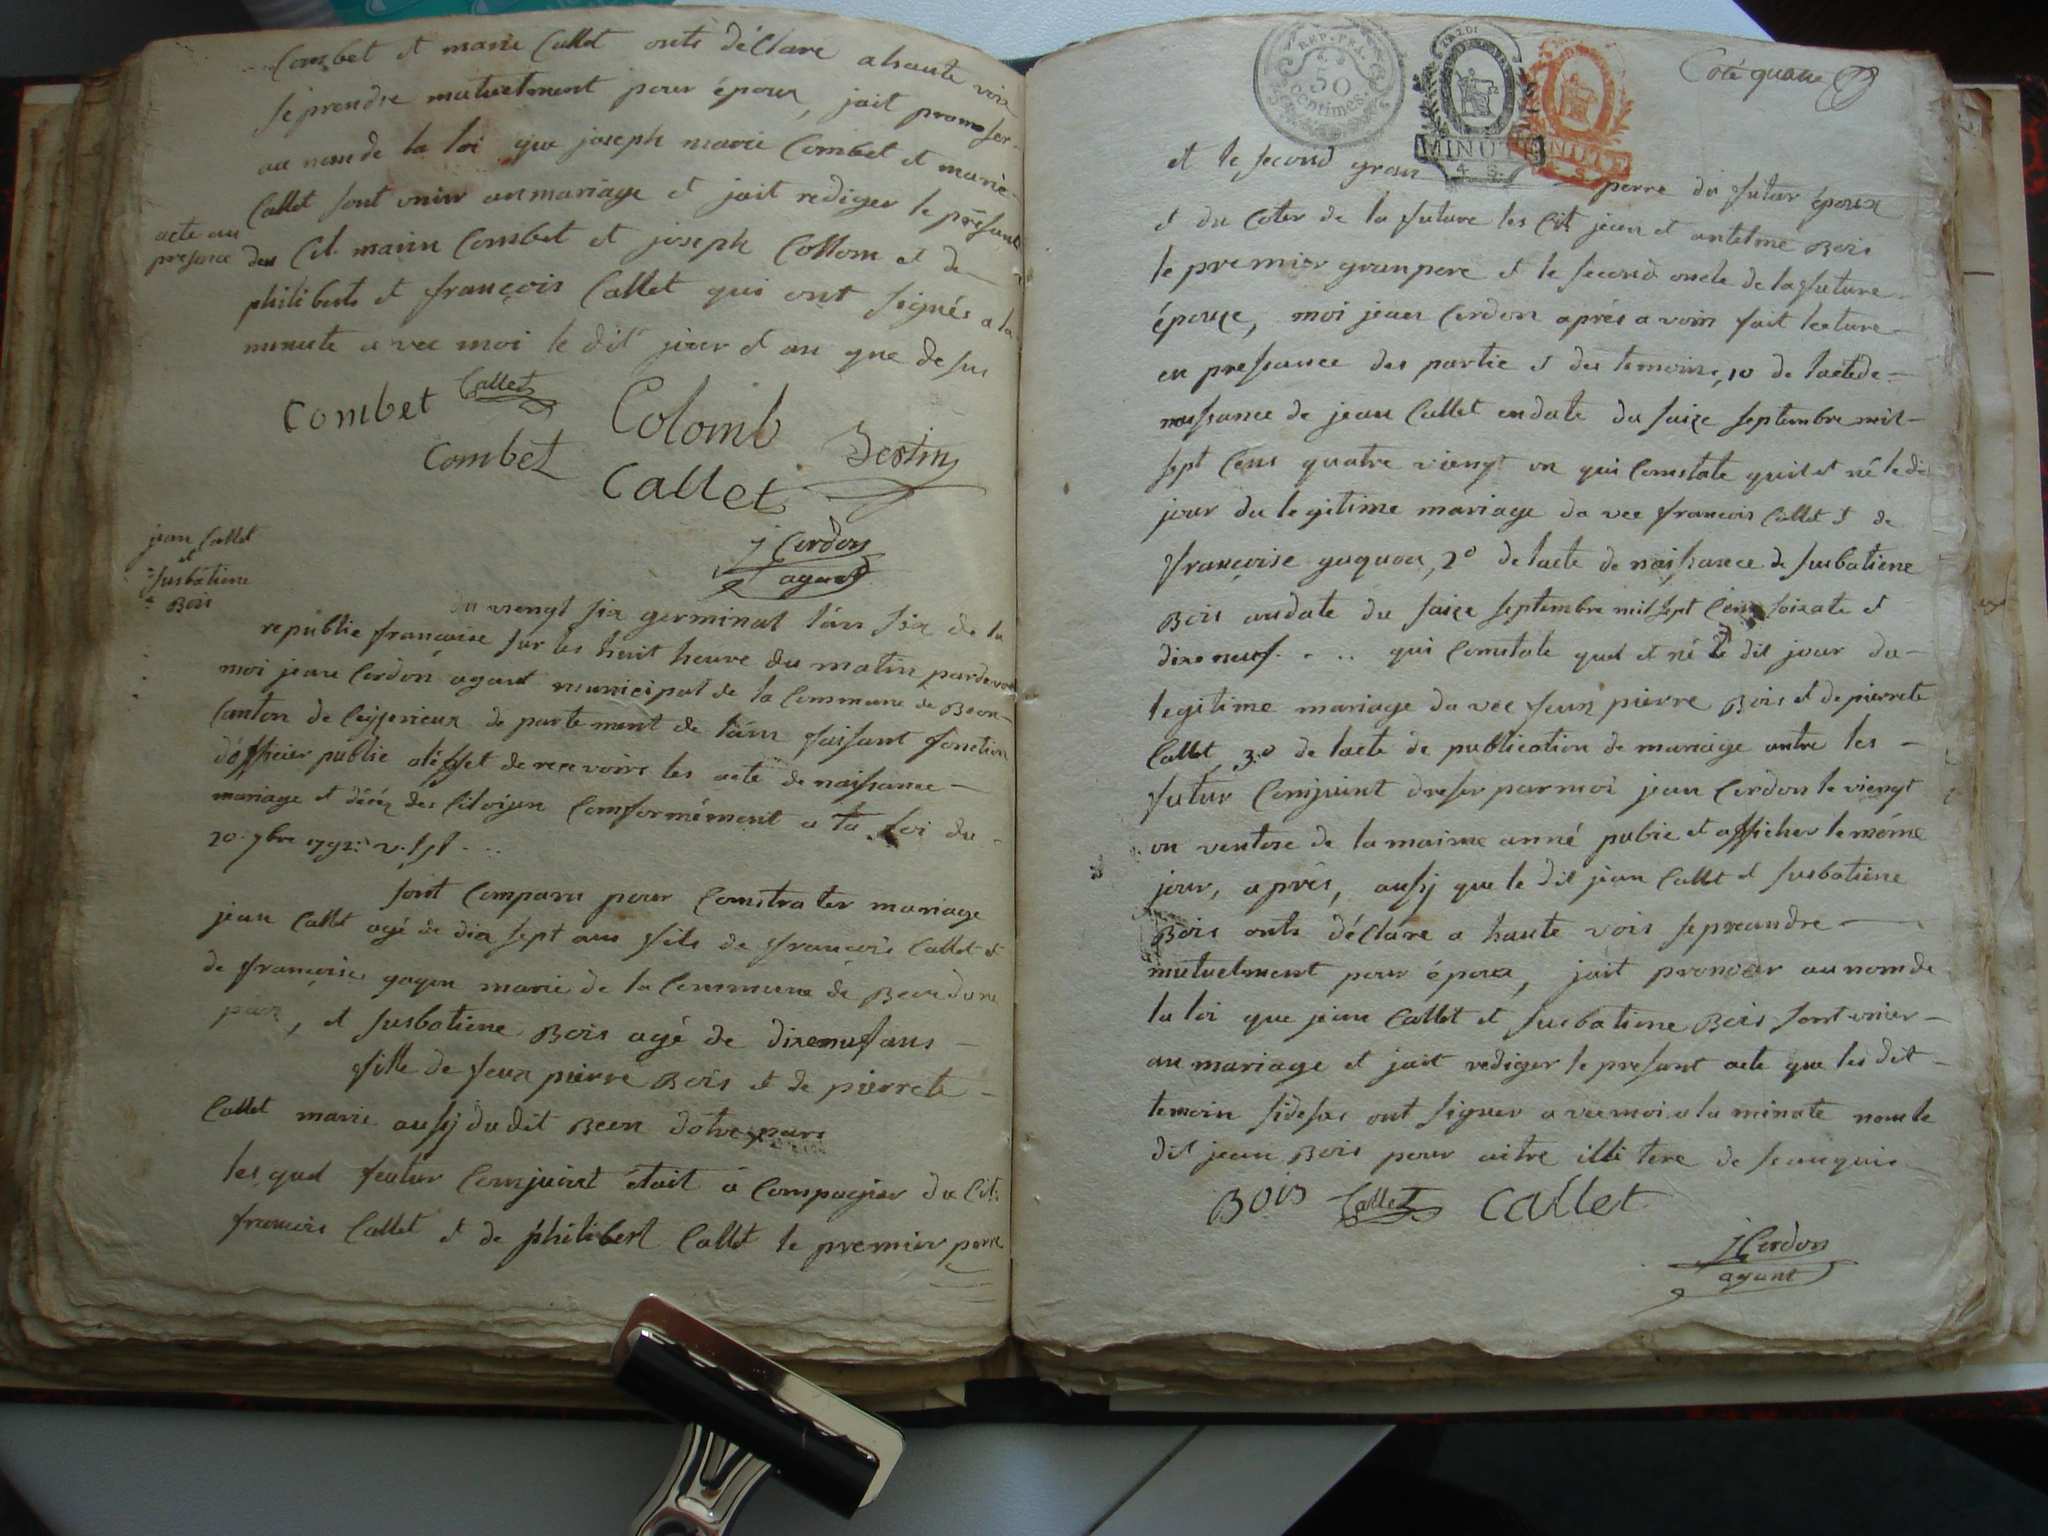 Combet et marie Callet onts déClare a haute voix
se prendre mutuelment pour époux, jait pronoser
au nom de la loi que joseph marie Combet et marie
Callet sont unir an mariage et jait rediger le présant
acte au
presence des Cit. marin Combet et joseph Collom et de
philiberts et françois Callet qui ont signés a la
minute avec moi le dit jour et an que desus
Combet Callet Colomb Bertin
Combet Callet
j Cordon
agant
jean Callet
et
susbatiene
Bois
du viengt six germinal l'an six de la
republic françoise sur les huit heure du matin pardevan
moi jean Cordon agant municipal de la Commune de Beon
Canton de Ceyserieux departement de l'ain faisant fonction
d'officier public aléffet de recevoire les acte de naissance
mariage et décéz des Citoijen Comformément a la Loi du
20. 7bre 1792. v. st
sont Comparu pour Comstrater mariage
jean Callet agé de dix sept ans fils de françois Callet et
de françoise gaqon marié de la Commune de Beon dune
par, et susbatiene Bois agé de dixeneuf ans
fille de feux pierre Bois et de pierrete
Callet marie aussj dudit Beon dotre pars
lesqual feutur Comjoint était a Compagier du Cit.
francois Callet et de philibert Callet le premier perre
Coté quatre
REP. FRA.
50
centimes.
MINUTE
4 S.
MINUTE
S.
et le second gran perre du futur époux
et du Coter de la future les Cit jean et antelme Bois
le premier granpere et le second oncle de la future
épouze, moi jean Cordon aprés avoir fait lecture
en pressance des partie et des temoins, 1o de lactede
naissance de jean Callet endate du saize septembre mil
sept Cens quatre viengt un qui Comstate quil et né le di
jour du legitime mariage da vec francois Callet et de
françoise gaquon, 2o de lacte de naissance de susbatiene
Bois andate du saize septembre mil sept Cens soixate et
dixeneuf. . .. qui Comstate quel et né le dit jour du
legitime mariage da vec feux pierre Bois et de pierrete
Callet, 3.o de lacte de publication de mariage antre les
futur Comjoint dreser par moi jean Cordon le viengt
un ventose de la maime anné publie et afficher le méme
jour, aprés, aussj que le dit jean Callet et susbatiene
Bois onts déClare a haute vois se preandre
mutuelment pour époux, jait pronoser au nom de
la loi que jean Callet et susbatiene Bois sont unier
an mariage et jait rediger le presant acte que les dit
temoin sidesus ont signer avec moi a la minute nom le
dit jean Bois pour aitre illitere de se anquis
Bois Callet Callet
j Cordon
agant